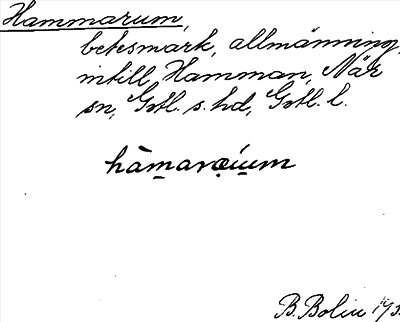 Hammarum,
betesmark, allmänning,
intill Hamman, När
sn, Gotl. s. hd, Gotl. l.
hàmarǫíum
B. Bolin